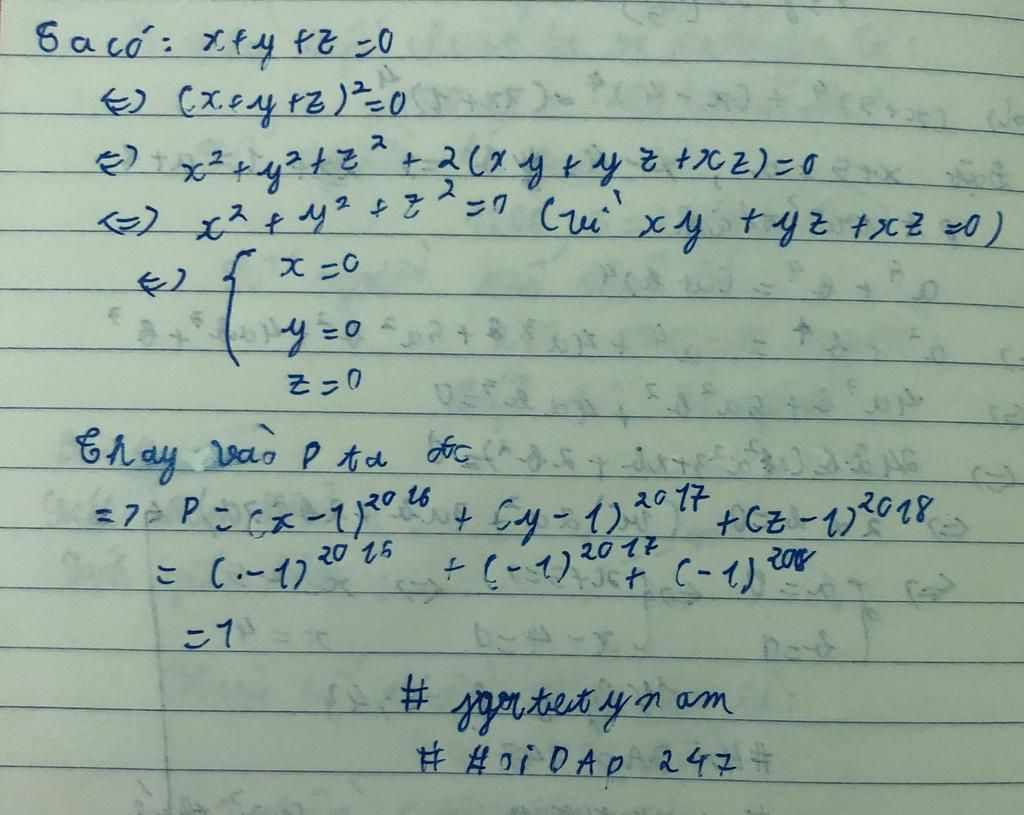 Ta có: x+y+z=0
<=> (x+y+z)²=0
<=> x²+y²+z²+2(xy+yz+xz)=0
<=> x²+y²+z²=0 (vì xy+yz+xz=0)
<=> { x=0
y=0
z=0
Thay vào P ta đc
=> P=(x-1)²⁰¹⁶+(y-1)²⁰¹⁷+(z-1)²⁰¹⁸
= (-1)²⁰¹⁶+(-1)²⁰¹⁷+(-1)²⁰¹⁸
=1
#
# HOIDAP 247